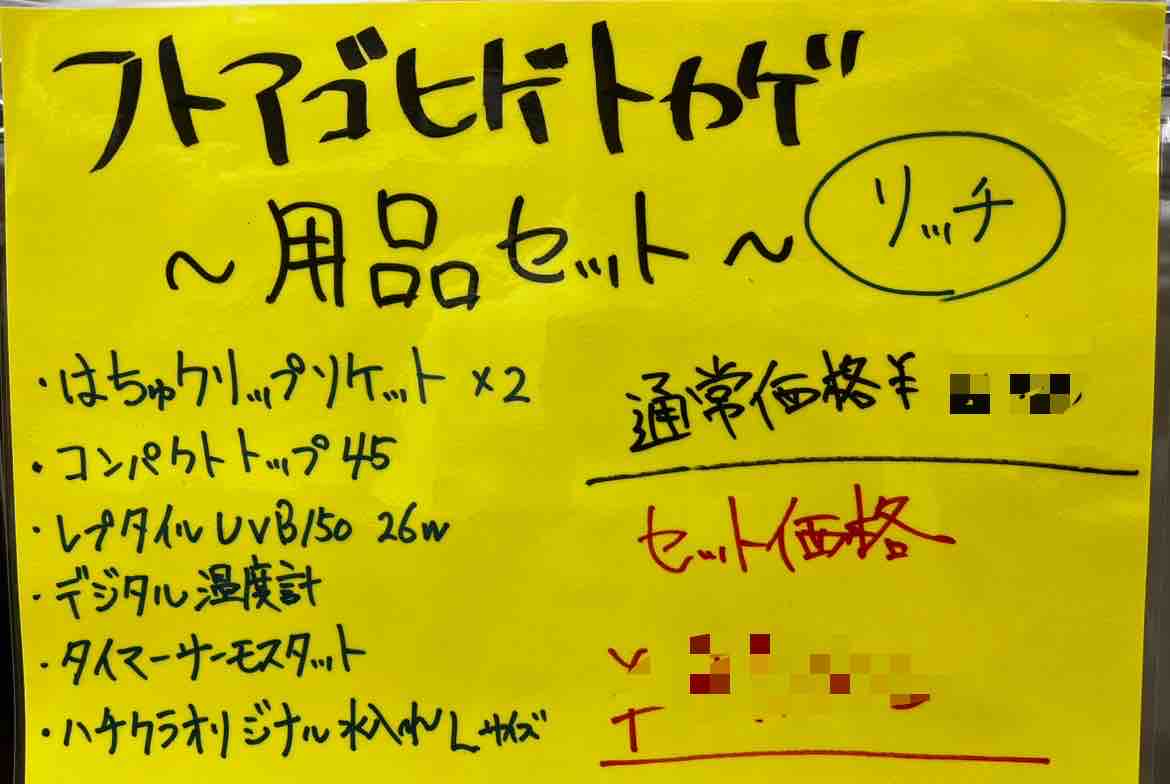 フトアゴヒゲトカゲ
～用品セット～
リッチ
・はちゅクリップソケット ×2
・コンパクトトップ 45
・レプタイルUVB150 26w
・デジタル温度計
・タイマーサーモスタット
・ハチクラオリジナル水入れLサイズ
通常価格¥
セット価格
¥